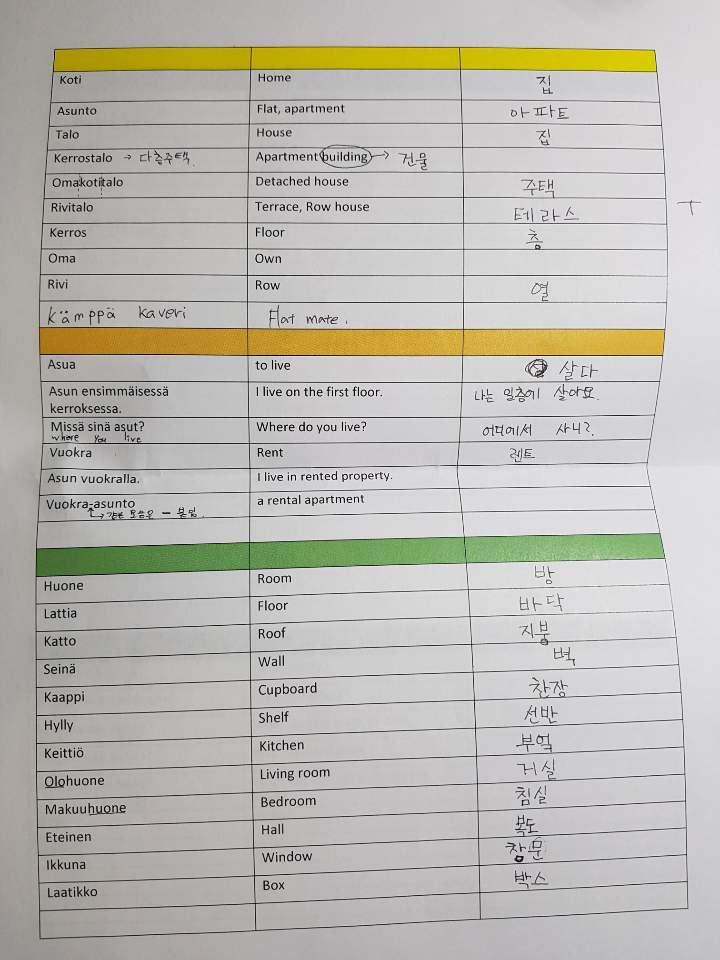 Koti Home 집
Asunto Flat, apartment 아파트
Talo House 집
Kerrostalo → 다층주택. Apartment building → 건물
Omakotitalo Detached house 주택
Rivitalo Terrace, Row house 테라스
Kerros Floor 층
Oma Own
Rivi Row 열
Kämppä kaveri Flat mate.
Asua to live 살다
Asun ensimmäisessä kerroksessa. I live on the first floor. 나는 일층에 살아요.
Missä sinä asut? Where do you live? 어디에서 사니?
where you live
Vuokra Rent 렌트
Asun vuokralla. I live in rented property.
Vuokra-asunto a rental apartment
→ 같은 모음은 - 붙임.
Huone Room 방
Lattia Floor 바닥
Katto Roof 지붕
Seinä Wall 벽
Kaappi Cupboard 찬장
Hylly Shelf 선반
Keittiö Kitchen 부엌
Olohuone Living room 거실
Makuuhuone Bedroom 침실
Eteinen Hall 복도
Ikkuna Window 창문
Laatikko Box 박스